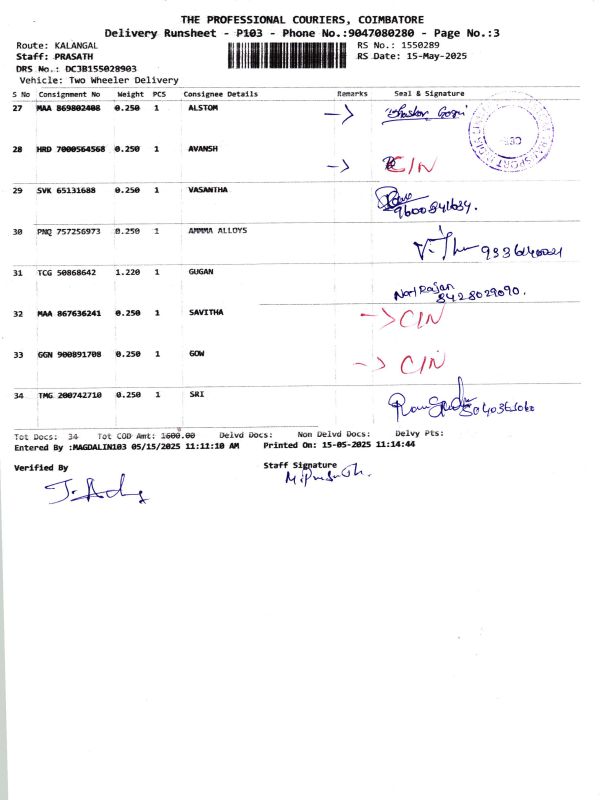 THE PROFESSIONAL COURIERS, COIMBATORE
Delivery Runsheet - P103 - Phone No.:9047080280 - Page No.:3
Route: KALANGAL RS No.: 1550289
Staff: PRASATH RS Date: 15-May-2025
DRS No.: DCJB155028903
Vehicle: Two Wheeler Delivery
S No Consignment No Weight PCS Consignee Details Remarks Seal & Signature
27 MAA 869802408 0.250 1 ALSTOM
28 HRD 7000564568 0.250 1 AVANSH C/N
29 SVK 65131688 0.250 1 VASANTHA
30 PNQ 757256973 0.250 1 AMMMA ALLOYS
31 TCG 50868642 1.220 1 GUGAN
8428029090.
32 MAA 867636241 0.250 1 SAVITHA C/N
33 GGN 900891708 0.250 1 GOW C/N
34 TMG 200742710 0.250 1 SRI
Tot Docs: 34 Tot COD Amt: 1600.00 Delvd Docs: Non Delvd Docs: Delvy Pts:
Entered By :MAGDALIN103 05/15/2025 11:11:10 AM Printed On: 15-05-2025 11:14:44
Verified By Staff Signature